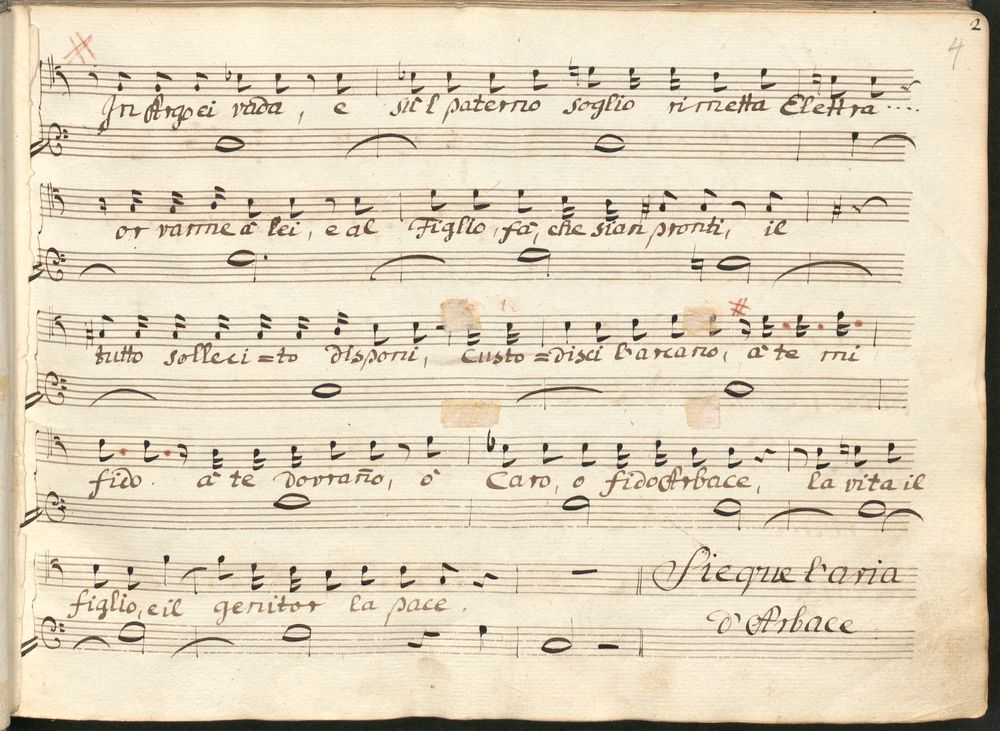 2
4
In Argo ei vada, e su'l paterno soglio rimetta Elettra....
or vanne à lei, e al Figlio, fà, che sian pronti, il
tutto solleci=to disponi, custo=disci l'arcano, à te mi
fido. à te dovrano, ò Caro, o fido Arbace, la vita il
figlio, e il genitor la pace.
Sieque l'aria
d'Arbace